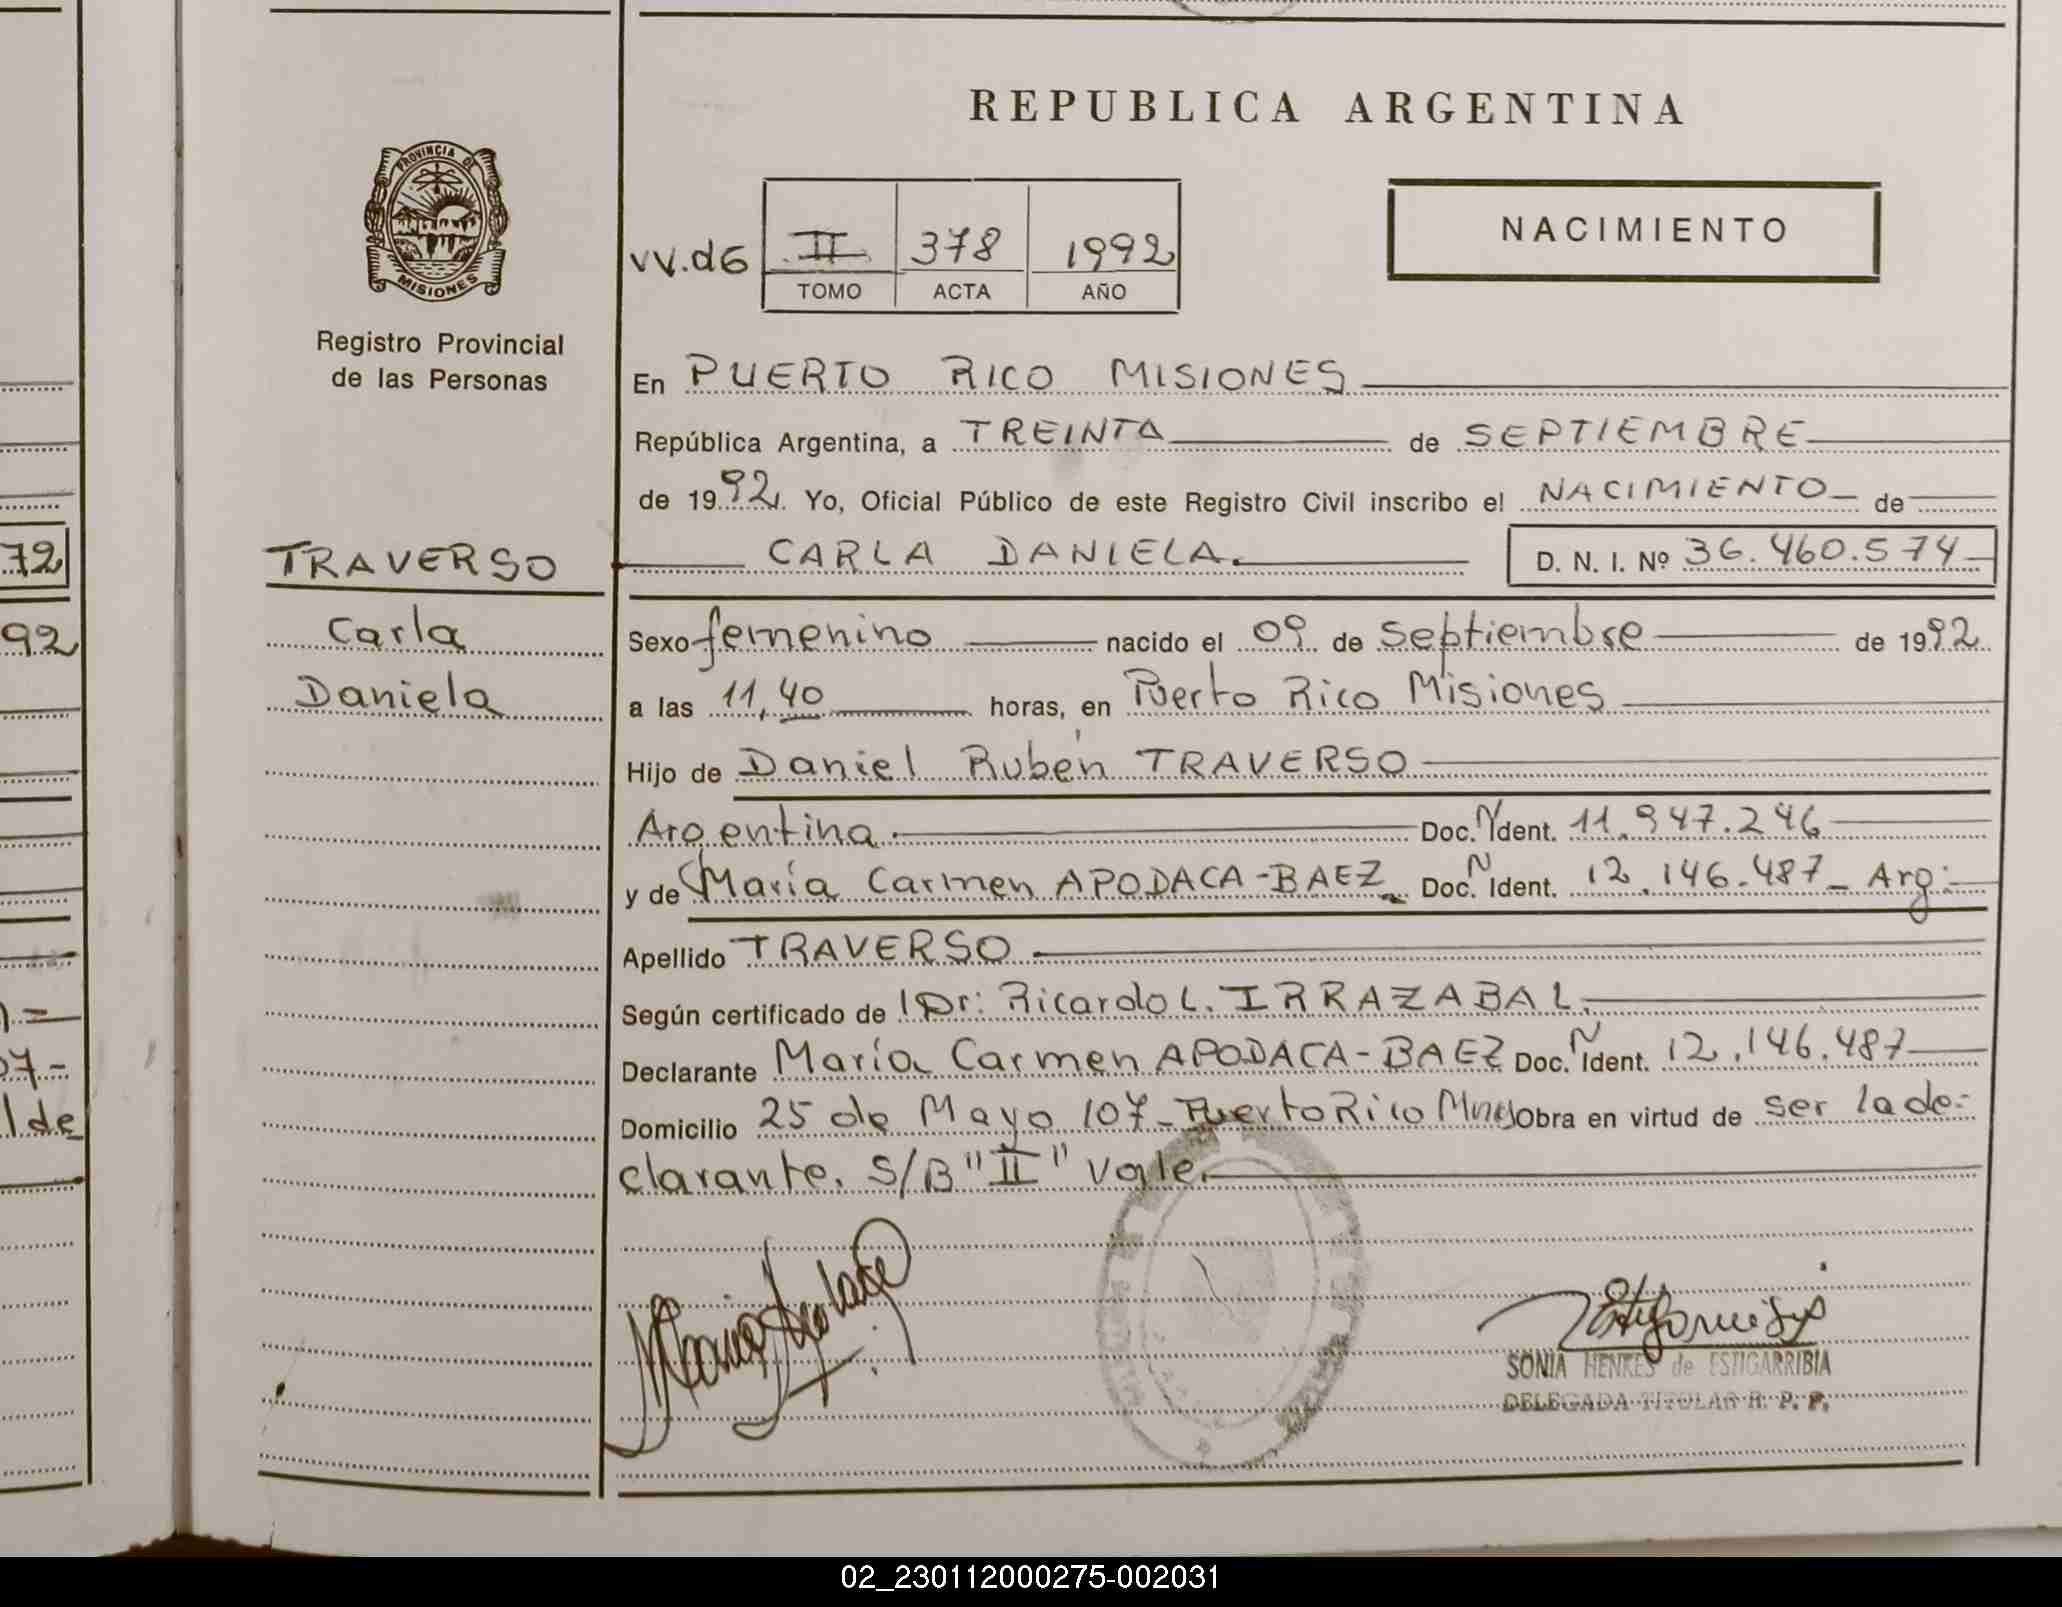 REPUBLICA ARGENTINA
PROVINCIA DE
MISIONES
Registro Provincial
de las Personas
NACIMIENTO
VV.dG II 378 1992
TOMO ACTA AÑO
En PUERTO RICO MISIONES
República Argentina, a TREINTA de SEPTIEMBRE
de 1992. Yo, Oficial Público de este Registro Civil inscribo el NACIMIENTO de
CARLA DANIELA. D. N. I. Nº 36.460.574
TRAVERSO
Carla
Daniela
Sexo femenino nacido el 09 de Septiembre de 1992
a las 11,40 horas, en Puerto Rico Misiones
Hijo de Daniel Rubén TRAVERSO
Argentina. Doc. N Ident. 11.947.246
y de María Carmen APODACA-BAEZ Doc. N Ident. 12.146.487_ Arg:
Apellido TRAVERSO
Según certificado de Dr: Ricardo L. IRRAZABAL.
Declarante María Carmen APODACA-BAEZ Doc. N Ident. 12.146.487
Domicilio 25 de Mayo 107_ Puerto Rico Mnes Obra en virtud de ser la de-
clarante. S/B "II" Vale.
SONIA HENKES de ESTIGARRIBIA
DELEGADA TITULAR R. P. P.
72
92
07-
lde
02_230112000275-002031